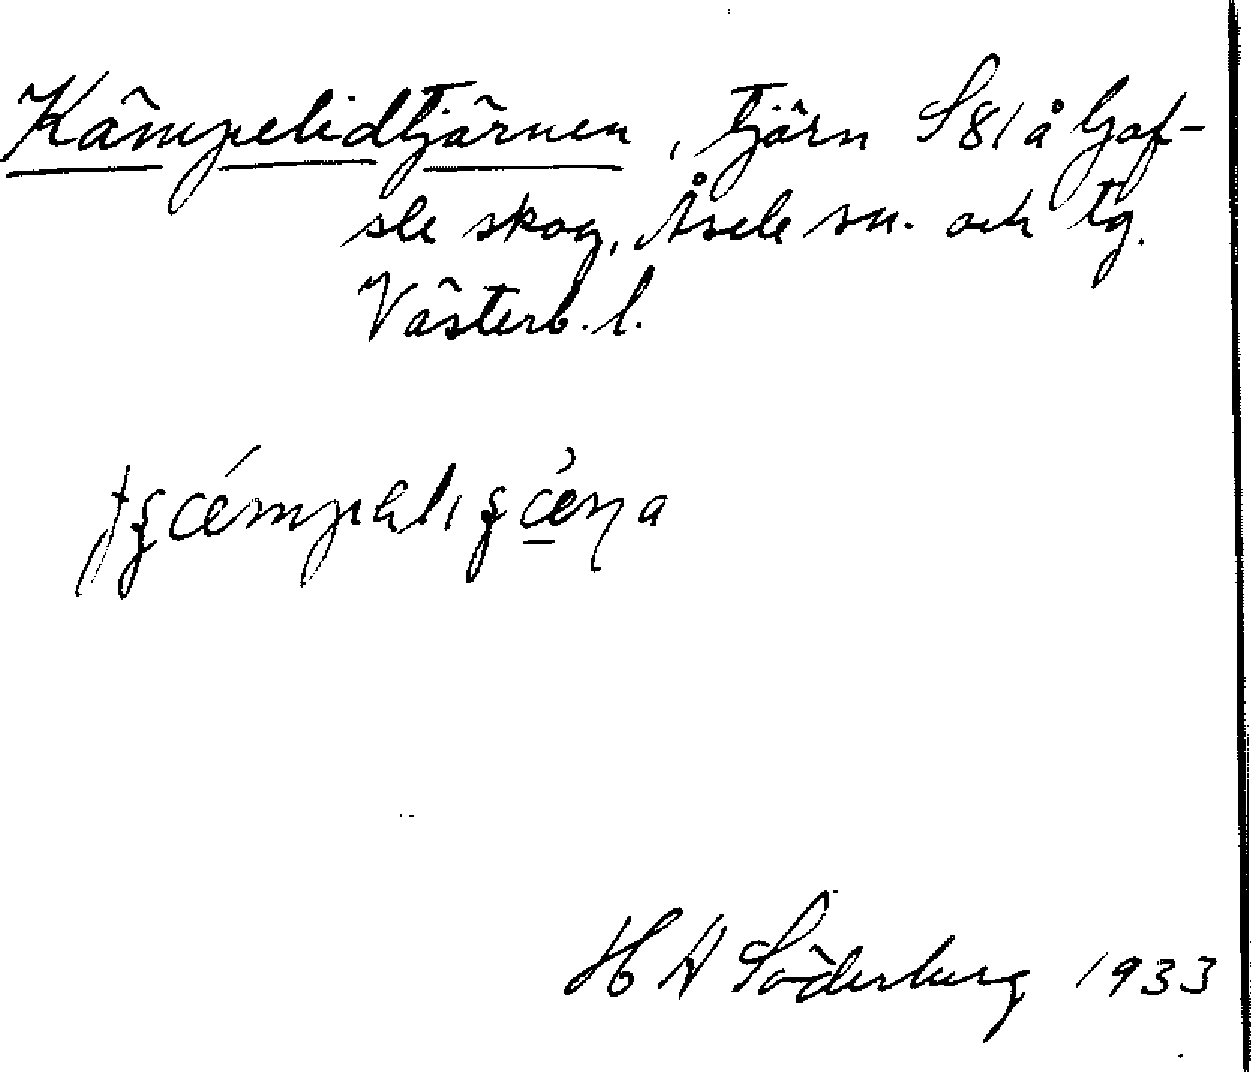 Kämpelidtjärnen, tjärn S 81 å Gaf-
sle skog, Åsele sn. och tg.
Västerb. l.
H A Söderberg 1933